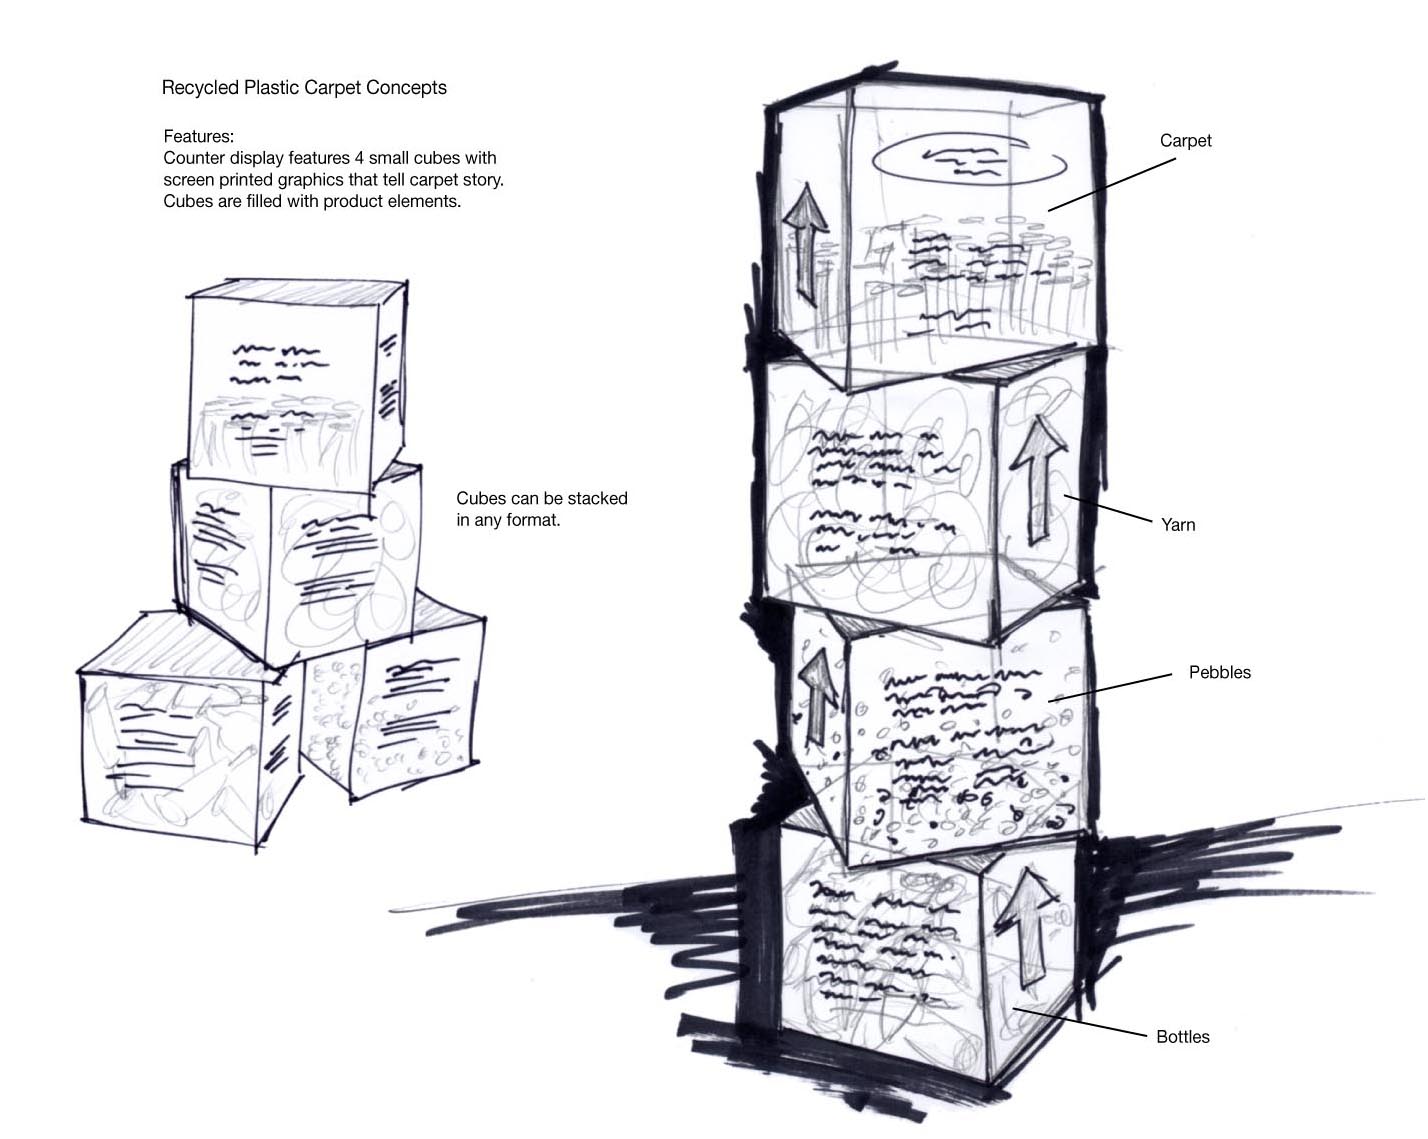 Recycled Plastic Carpet Concepts
Features:
Counter display features 4 small cubes with
screen printed graphics that tell carpet story.
Cubes are filled with product elements.
Cubes can be stacked
in any format.
Carpet
Yarn
Pebbles
Bottles